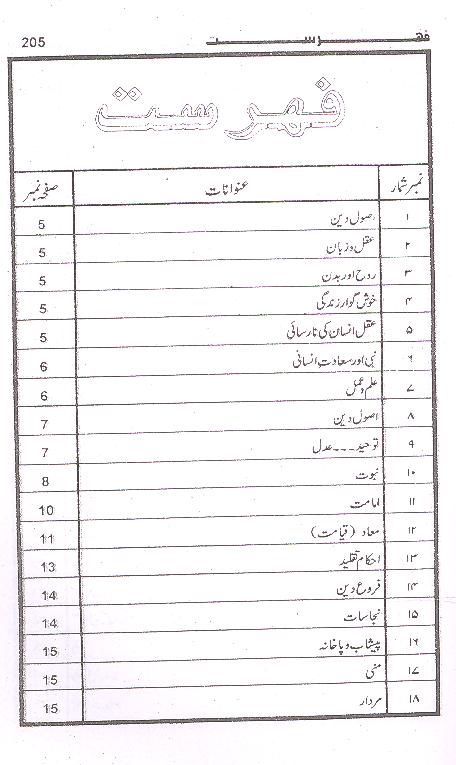 فہرست 205
فہرست
نمبر شمار عنوانات صفحہ نمبر
۱ اصول دین 5
۲ عقل و زبان 5
۳ روح اور بدن 5
۴ خوش گوار زندگی 5
۵ عقل انسان کی نارسائی 5
۶ نبی اور سعادت انسانی 6
۷ علم و عمل 6
۸ اصول دین 7
۹ توحید۔۔۔عدل 7
۱۰ نبوت 8
۱۱ امامت 10
۱۲ معاد (قیامت) 11
۱۳ احکام تقلید 13
۱۴ فروع دین 14
۱۵ نجاسات 14
۱۶ پیشاب و پاخانہ 15
۱۷ منی 15
۱۸ مردار 15